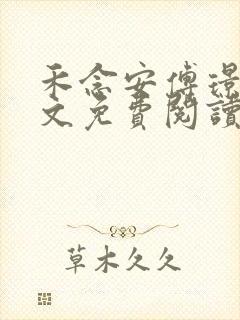 禾念安傅璟
文免費閱讀
草木久久